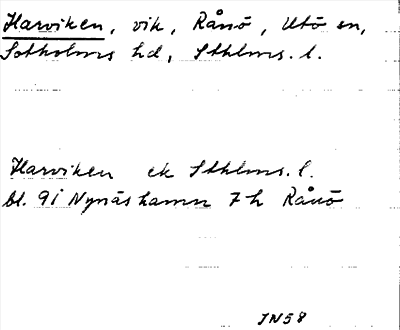 Harviken, vik, Rånö, Utö sn,
Sotholms hd, Sthlms. l.
Harviken ek Sthlms. l.
bl. 9i Nynäshamn 7h Rånö
JN58